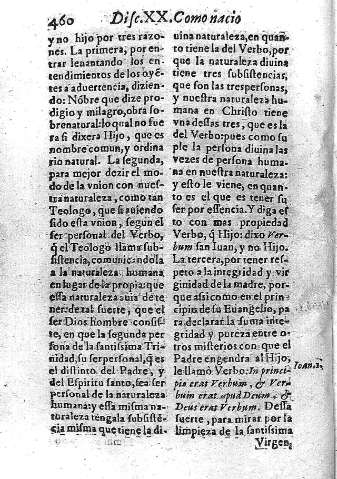 460 Disc. XX. Como nacio
y no hijo por tres razo-
nes. La primera, por en-
trar leuantando los en-
tendimientos de los oyẽ-
tes a aduertencia, dizien-
do: Nõbre que dize pro-
digio y milagro, obra so-
brenatural: lo qual no fue
ra si dixera Hijo, que es
nombre comun, y ordina
rio natural. La segunda,
para mejor dezir el mo-
do de la vnion con nues-
tra naturaleza, como tan
Teologo, que siẽdo
esta vnion, segun el
ser personal del Verbo,
q̃ el Teologo llama sub-
sistencia, comunicãdola
a la naturaleza humana
en lugar de la propia: que
essa naturaleza auia de te-
ner: de tal suerte, que el
ser Dios hombre consis-
te, en que la segunda per
sona de la santissima Tri-
nidad, su ser personal, q̃ es
el distinto del Padre, y
del Espiritu santo, sea ser
personal de la naturaleza
humana: y essa misma na
turaleza tenga la subsistẽ-
cia misma que tiene la di-
uina naturaleza, en quan-
to tiene la del Verbo, por
que la naturaleza diuina
tiene tres subsistencias,
que son las tres personas,
y nuestra naturaleza hu-
mana en Christo tiene
vna dessas tres, que es la
del Verbo: pues como su
ple la persona diuina las
vezes de persona huma-
na en nuestra naturaleza:
y esto le viene, en quan-
to es el que es tener su
ser por essencia. Y diga es
to con mas propiedad
Verbo, q̃ Hijo: dixo Ver-
bum san Iuan, y no Hijo.
La tercera, por tener res-
peto a la integridad y vir
ginidad de la madre, por-
que assi como en el prin-
cipio de su Euangelio, pa
ra declarar la suma inte-
gridad y pureza entre o-
tros misterios con que el
Padre engendra al Hijo,
le llamò Verbo: In princi-
pio erat Verbum, & Ver-
bum erat apud Deum, &
Deus erat Verbum. Dessa
suerte, para mirar por la
limpieza de la santissima
Ioan. 1.
Virgen,